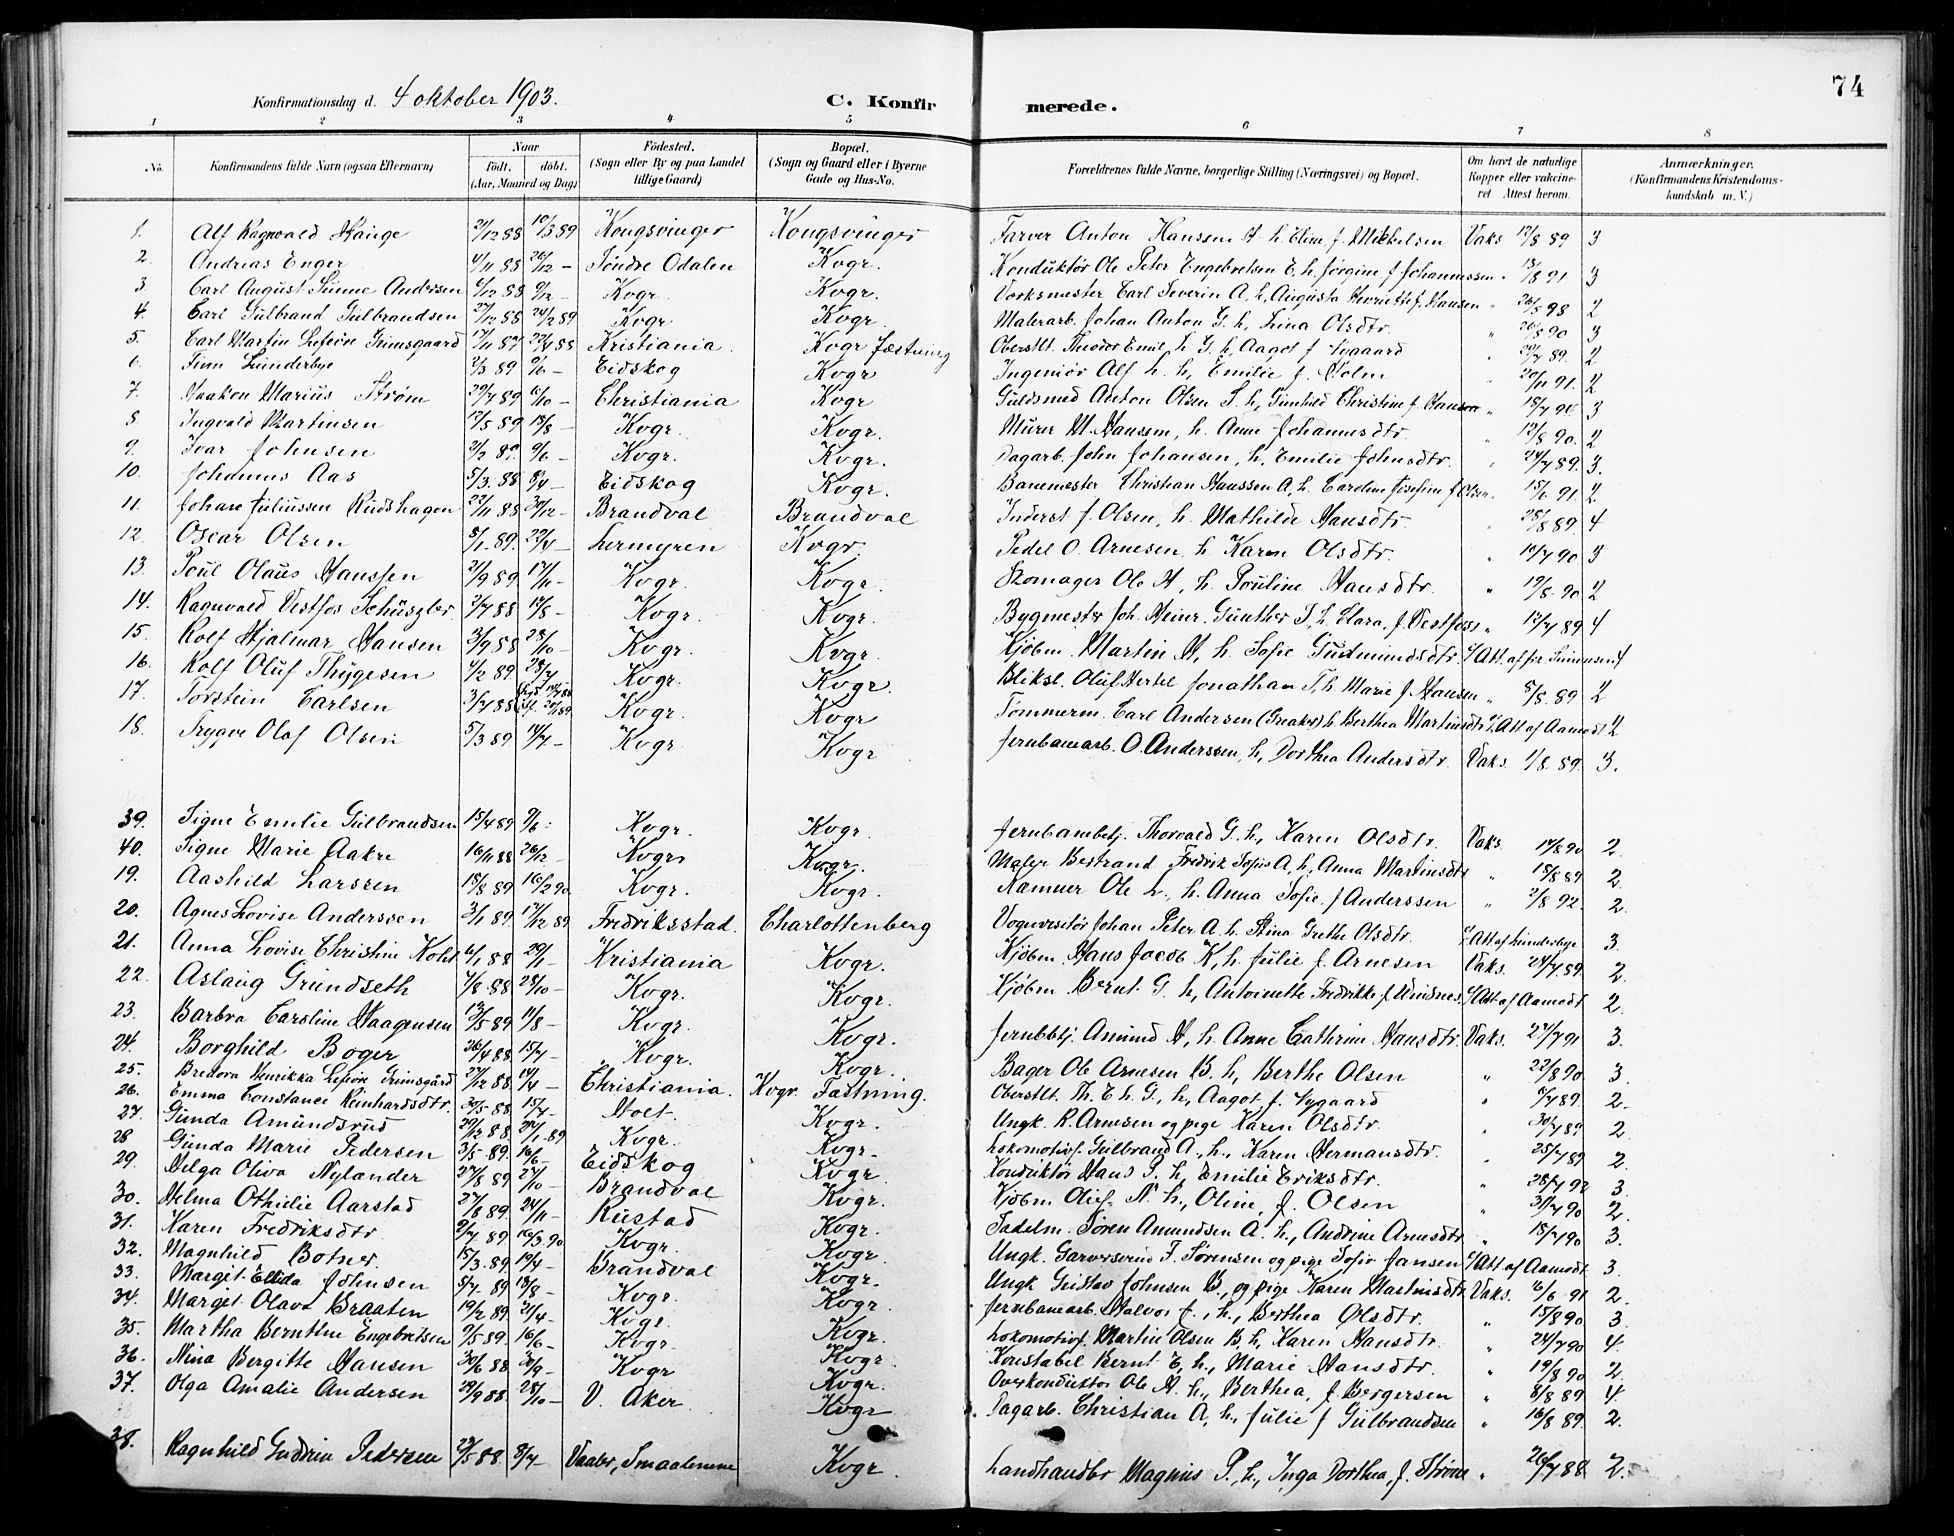 74
Konfirmationsdag d. 4 oktober 1903. C. Konfirmerede.
1 2 3 4 5 6 7 8
No. Konfirmandens fulde Navn (ogsaa Efternavn) Naar født. døbt. (Aar, Maaned og Dag) Fødested. (Sogn eller By og paa Landet tillige Gaard) Bopæl. (Sogn og Gaard eller i Byerne Gade og Hus-No. Forældrenes fulde Navne, borgerlige Stilling (Næringsvei) og Bopæl. Om havt de naturlige Kopper eller vakcineret Attest herom. Anmærkninger. (Konfirmandens Kristendomskundskab m. V.)
1. Alf Ragnvald Hauge 21/12 88 10/3 89 Kongsvinger Kongsvinger Farver Anton Hanssen H. h. Elina f. Mikkelsen Vaks 12/8 89 3
2. Andreas Enger 4/11 88 26/12 – Søndre Odalen Kvgr. Konduktör Ole Peter Engebretsen E. h. Jörgine f Johannessen " 13/8 91 3
3 Carl August Sünne Andersen 6/12 88 9/12 – Kvgr. Kvgr. Værksmester Carl Severin A, h, Augusta Henriette f. Hansen " 26/5 98 2
4. Carl Gulbrand Gulbrandsen 27/12 88 24/2 89 Kvgr Kvgr. Malerarb. Johan Anton G. h, Lina Olsdtr. " 26/8 90 3
5. Carl Martin Grimsgaard 17/11 87 22/4 88 Kristiania. Kvgr Fæstning Oberstlt. Theodor Emil L. G. h, Aagot f Nygaard " 29/7 89. 2
6. Finn Lunderbye 2/3 89 9/6 – Eidskog Kvgr Ingeniör Alf L. h, Emilie f. Holm " 20/11 91. 2
7. Haakon Marius Strøm 29/7 89 6/10 – Christiania Kvgr Guldsmed Anton Olsen S. h, Gunhild Christine f. Hansen " 18/7 90 3
8. Ingvald Martinsen 12/5 89 18/8 – Kvgr. Kvgr. Murer M. Hansen, h. Anne Johannesdtr. " 12/8 90. 2
9. Ivar Johnsen 2/2 89. 9/6 – Kvgr. Kvgr. Dagarb. John Johansen, h, Emilie Johnsdtr. " 24/7 89. 3.
10. Johannes Aas 5/3. 88 8/4 – Eidskog Kvgr. Banemester Christian Hanssen A, h. Caroline Josefine f Olsen. " 15/6 91. 2
11. Johan Juliussen Rudshagen 22/11 88 30/12 – Brandval Brandval Inderst J. Olsen, h. Mathilde Hansdtr. " 28/8 89. 4
12. Oscar Olsen 8/1. 89. 22/4 – Lermyren Kvgr. Pedel O. Arnesen, h. Karen Olsdtr. " 10/7 90 3
13. Poul Olaus Hanssen 21/9 89 17/11 – Kvgr. Kvgr. Skomager Ole H, h. Pouline Hansdtr. " 19/8. 90 2
14. Ragnvald Vestfos Schüszler 2/7 88 19/8 – Kvgr. Kvgr. Bygmester Joh. Heinr. Günther S, h. Clara, f. Vestfoss " 12/7 89 4
15. Rolf Hjalmar Hansen 3/9 88 28/10 – Kvgr. Kvgr. Kjöbm. Martin H, h. Sofie Gudmundsdtr. Att. af fr. Simensen 4
16. Rolf Oluf Thygesen 4/2 89. 28/7 Kvgr. Kvgr. Bliksl. Oluf Hertel Jonathan T. h. Marie f. Hansen " 8/8. 89 2
17. Torstein Carlsen 3/7 88 Kvgr. Kvgr Tømmerm. Carl Andersen (Greaker) h. Berthea Martinsdtr Att af Aamodt 2
18. Trygve Olaf Olsen 5/3 89. 14/7 – Kvgr Kvgr Jernbanearb. O. Anderssen, h, Dorthea Andersdtr. Vaks. 1/8. 89. 3.
39. Signe Emilie Gulbrandsen 15/4 89 9/6. Kvgr. Kvgr. Jernbanebetj. Thorvald G. h, Karen Olsdtr. Vaks. 14/8 90 2.
40. Signe Marie Aakre 16/11 88 26/12 – Kvgr Kvgr. Maler Bertrand Fredrik Sofus A, h, Anna Martinsdtr " 15/8 89 2.
19. Aashild Larssen 18/8 89 16/2 90. Kvgr. Kvgr. Kamner Ole L. h. Anna Sofie. f Anderssen " 2/8 92. 2.
20. Agnes Lovise Anderssen 3/1 89. 17/12 89 Fredriksstad. Charlottenberg Vognvisitør Johan Peter A. h. Stina Grethe Olsdtr. Att af Lunderbye 3.
21. Anna Lovise Christine Kolst 6/1 88 29/1 – Kristiania Kvgr. Kjöbm. Hans Jacob K, h. Julie f. Arnesen Vaks. 24/7. 89. 2.
22. Aslaug Grundseth 4/8 88 28/10 – Kvgr. Kvgr. Kjöbm Bernt G. h, Antoinette Fredrikke f. Att. af Aamodt 2.
23. Barbra Caroline Haagensen 12/5 89 11/8 – Kvgr. Kvgr. Jernbbtj. Amund H, h. Anne Cathrine Hansdtr. Vaks. 27/7 91 3.
24. Borghild Boger 26/4 88. 15/7 – Kvgr. Kvgr. Bager Ole Arnesen B. h, Berthe Olsen " 22/8 90. 3.
25. Bredora Henrikka Grimsgård 27/12 88 14/4 – Christiania. Kvgr. Fæstning. Oberstlt. Th. E. L. G., h, Aagot f. Nygaard " 6/7 89. 2.
26. Emma Constance Reinhardsdtr. 30/5 88 15/7 – Holt Kvgr. Ungk. R. Arnesen og pige Karen Olsdtr. " 30/7 89 2.
27. Gunda Amundsrud 29/12 88. 27/1 89 Kvgr. Kvgr. Lokomotivf. Gulbrand A., h., Karen Hermansdtr. " 25/7 89 2.
28 Gunda Marie Pedersen 3/5 89. 16/6 – Eidskog Kvgr Konduktör Hans P. h, Emilie Eriksdtr. " 28/7 92 3.
29. Helga Oliva Nylander 27/8 89 27/10 – Brandval Kvgr. Kjöbm. Oluf N. h., Oline, f. Olsen " 31/7 90 2.
30. Helma Othilie Aarstad 27/8 89. 24/11 – Rustad Kvgr. Sadelm. Sören Amundsen A. h., Andrine Arnesdtr. " 15/7 90 3.
31. Karen Fredriksdtr. 9/7 89 16/3. 90 Kvgr. Kvgr. Ungk. Garversvend F. Sörensen og pige Sofie Jansen Att af Aamodt 3.
32. Magnhild Botner 15/3. 89. 19/4 – Brandval Kvgr. Ungk Gustav Johnsen B., og pige Karen Martinsdtr. Vaks. 16/6 91 2.
33. Margit Ellida Johnsen 5/7. 89 18/8 – Kvgr. Kvgr. Jernbanearb. Halvor J., h, Berthea Olsdtr. " 15/8 90 3.
34. Margit Olava Braaten 19/2 89. 21/4 – Kvgr. Kvgr. Lokomotivf. Martin Olsen B. h, Karen Hansdtr. " 24/7 90 4.
35. Martha Berntine Engebretsen 9/5 89. 16/6 – Kvgr Kvgr. Konstabel Bernt E, h., Marie Hansdtr. " 19/8 90 2.
36. Nina Bergitte Hansen 30/6 88. 30/9 – Kvgr Kvgr. Overkonduktör Ole H. h., Berthea, f. Bergersen " 8/8 89 4.
37. Olga Amalie Andersen 29/9 88. 28/10 – V. Aker. Kvgr Dagarb. Christian A, h., Julie f Gulbrandsen " 16/8 89. 2.
38. Ragnhild Gudrun Pedersen 23/5 88 8/7 – Vaaler, Smaalenene Kvgr. Landhandler Magnus P., h, Inga Dorthea, f. Strøm " 26/7 88 2.